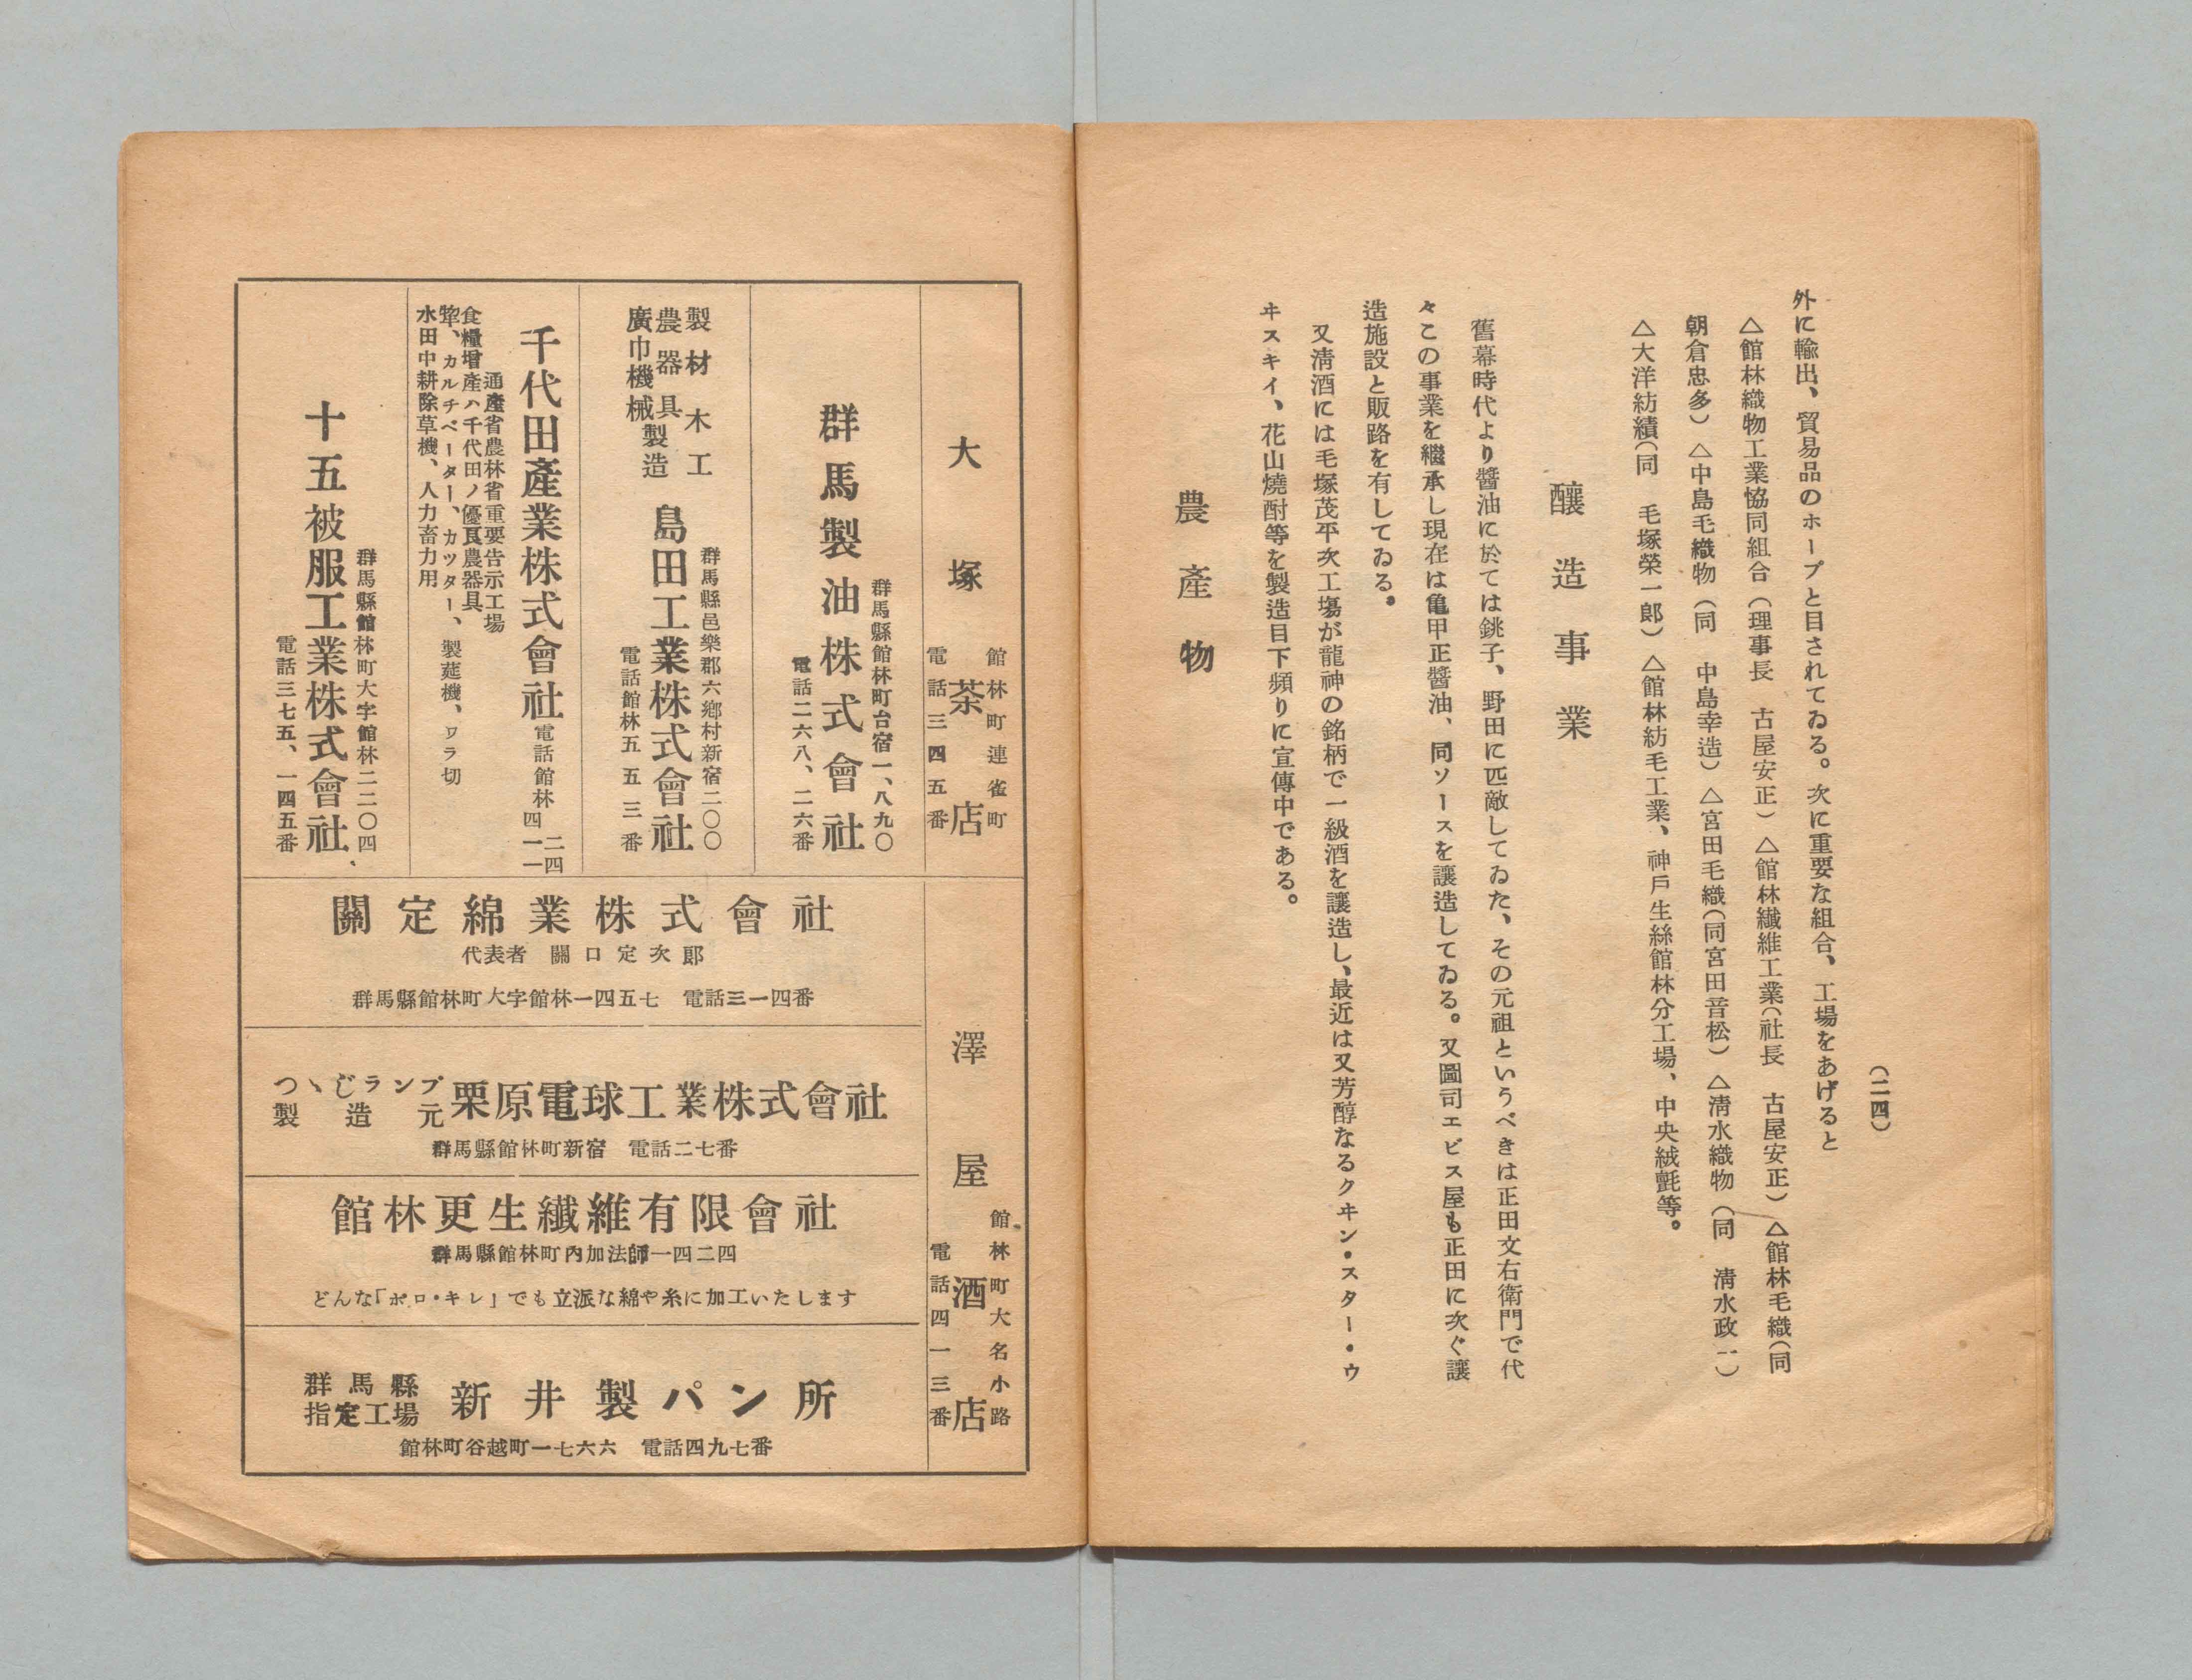 (二四)
外に輸出、貿易品のホープと目されてゐる。次に重要な組合、工場をあげると
△館林織物工業協同組合(理事長 古屋安正)△館林纖維工業(社長 古屋安正)△館林毛織(同
朝倉忠多)△中島毛織物(同 中島幸造)△宮田毛織(同宮田音松)△淸水織物(同 淸水政一)
△大洋紡績(同 毛塚榮一郎)△館林紡毛工業、神戶生絲館林分工場、中央絨氈等。
釀造事業
舊幕時代より醬油に於ては銚子、野田に匹敵してゐた、その元祖というべきは正田文右衛門で代
々この事業を繼承し現在は亀甲正醬油、同ソースを讓造してゐる。又圖司エビス屋も正田に次ぐ讓
造施設と販路を有してゐる。
又淸酒には毛塚茂平次工塲が龍神の銘柄で一級酒を讓造し、最近は又芳醇なるクヰン・スター・ウ
ヰスキイ、花山燒酎等を製造目下頻りに宣傳中である。
農產物
館林町連雀町
大塚茶店
電話三四五番
群馬縣館林町台宿一、八九〇
群馬製油株式會社
電話二六八、二六番
製材木工
農器具
廣巾機械
製造
群馬縣邑樂郡六鄕村新宿二〇〇
島田工業株式會社
電話館林五五三番
千代田產業株式會社
電話館林
二四
四一一
通產省農林省重要告示工場
食糧增產ハ千代田ノ優良農器具
犂、カルチベーター、カツター、製莚機、ワラ切
水田中耕除草機、人力畜力用
群馬縣館林町大字館林二二〇四
十五被服工業株式會社
電話三七五、一四五番
館林町大名小路
澤屋酒店
電話四一三番
關定綿業株式會社
代表者 關口定次郞
群馬縣館林町大字館林一四五七 電話三一四番
つゝじランプ
製造元
栗原電球工業株式會社
群馬縣館林町新宿 電話二七番
館林更生纖維有限會社
群馬縣館林町內加法師一四二四
どんな「ボロ・キレ」でも立派な綿や糸に加工いたします
群馬縣
指定工場
新井製パン所
館林町谷越町一七六六 電話四九七番